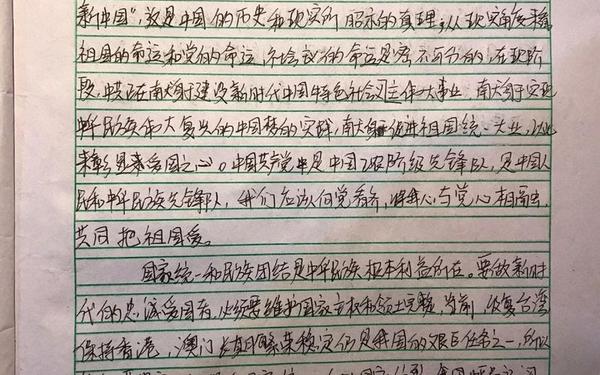 新中国”，这是中国的历史和现实所昭示的真理；从现实角度来看
祖国的命运和党的命运、社会主义的命运是密不可分的，在现阶
段，中共正在献身于建设新时代中国特色社会主义伟大事业、献身于实现
中华民族伟大复兴的中国梦的实践，献身于促进祖国统一大业，以此
来彰显爱国之心。中国共产党是中国工人阶级先锋队，是中国人
民和中华民族先锋队，我们应该向党看齐，将我心与党心相融，
共同把祖国爱。
国家统一和民族团结是中华民族根本利益所在。要做新时
代的忠诚爱国者，必须要维护国家主权和领土完整，当前，恢复台湾
保持香港、澳门长期繁荣稳定仍是我国的艰巨任务之一，所以